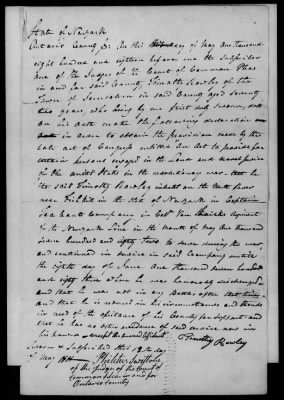 State of Newyork
Ontario County ss: On this day of May One thousand
eight hundred and eighteen before me the Subscriber
One of the Judges of the Court of Common Pleas
in and for said County, Timothy Rowley of the
Town of in said County aged Seventy
two years, who being by me first duly Sworn, doth
on his oath make the following declaration
in order to obtain the provision made by the
late act of Congress entitled "An Act to provide for
certain persons engaged in the land and naval service
of the United States in the revolutionary war. that he
the said Timothy Rowley inlisted on the North River
near Fishkill in the State of Newyork in Captain
Company in Colo Van Schaick Regiment
Newyork Line in the month of May One thousand
seven hundred and eighty two to serve during the war,
and continued in service in said Company until
the eighth day of June One thousand seven hundred
and eighty three when he was honorably discharged
and that he was not in any
and that he is in his circumstances and stands
in need of the assistance of his Country for support and
that he has no other evidence of said service now in
his power except the annexed affidavit
Timothy Rowley
Sworn & Subscribed this day
of May 1818 Philetus Swift one
of the Judges of the Court of
Common Pleas in and for
Ontario County